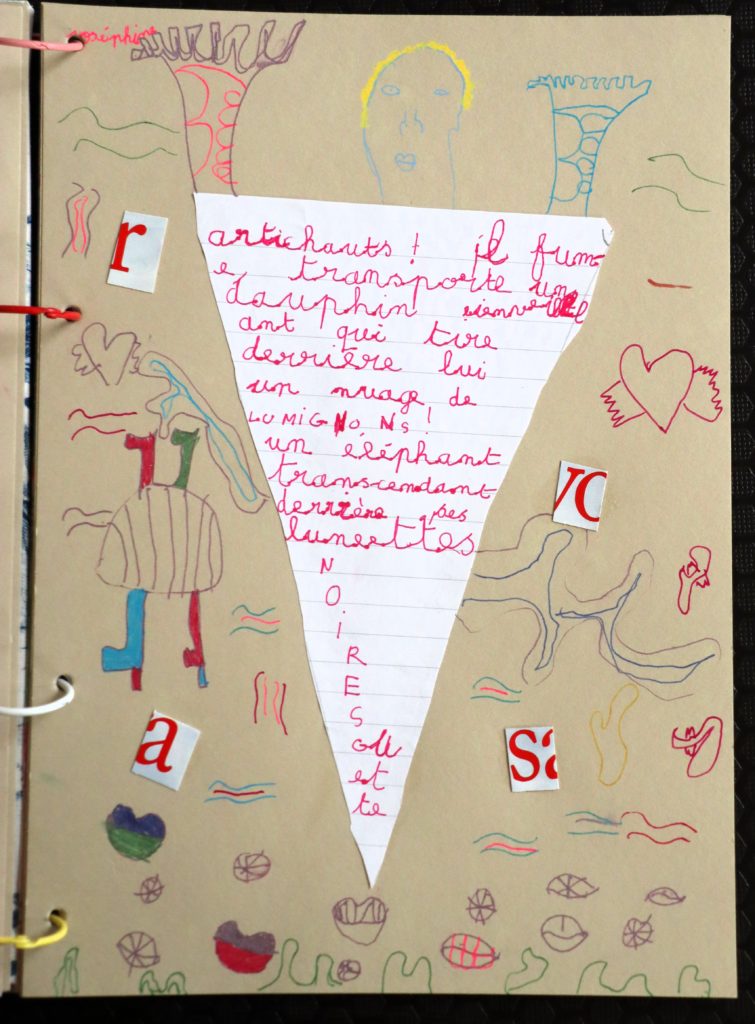 Joséphine
r
artichauts! il fum
e, transporte un
dauphin
ant qui tire
derrière lui
un nuage de
LUMIGNONS!
un éléphant
transcendant
derrière ses
lunettes
N
O
i
R
E
S
vo
a
sa
est
te